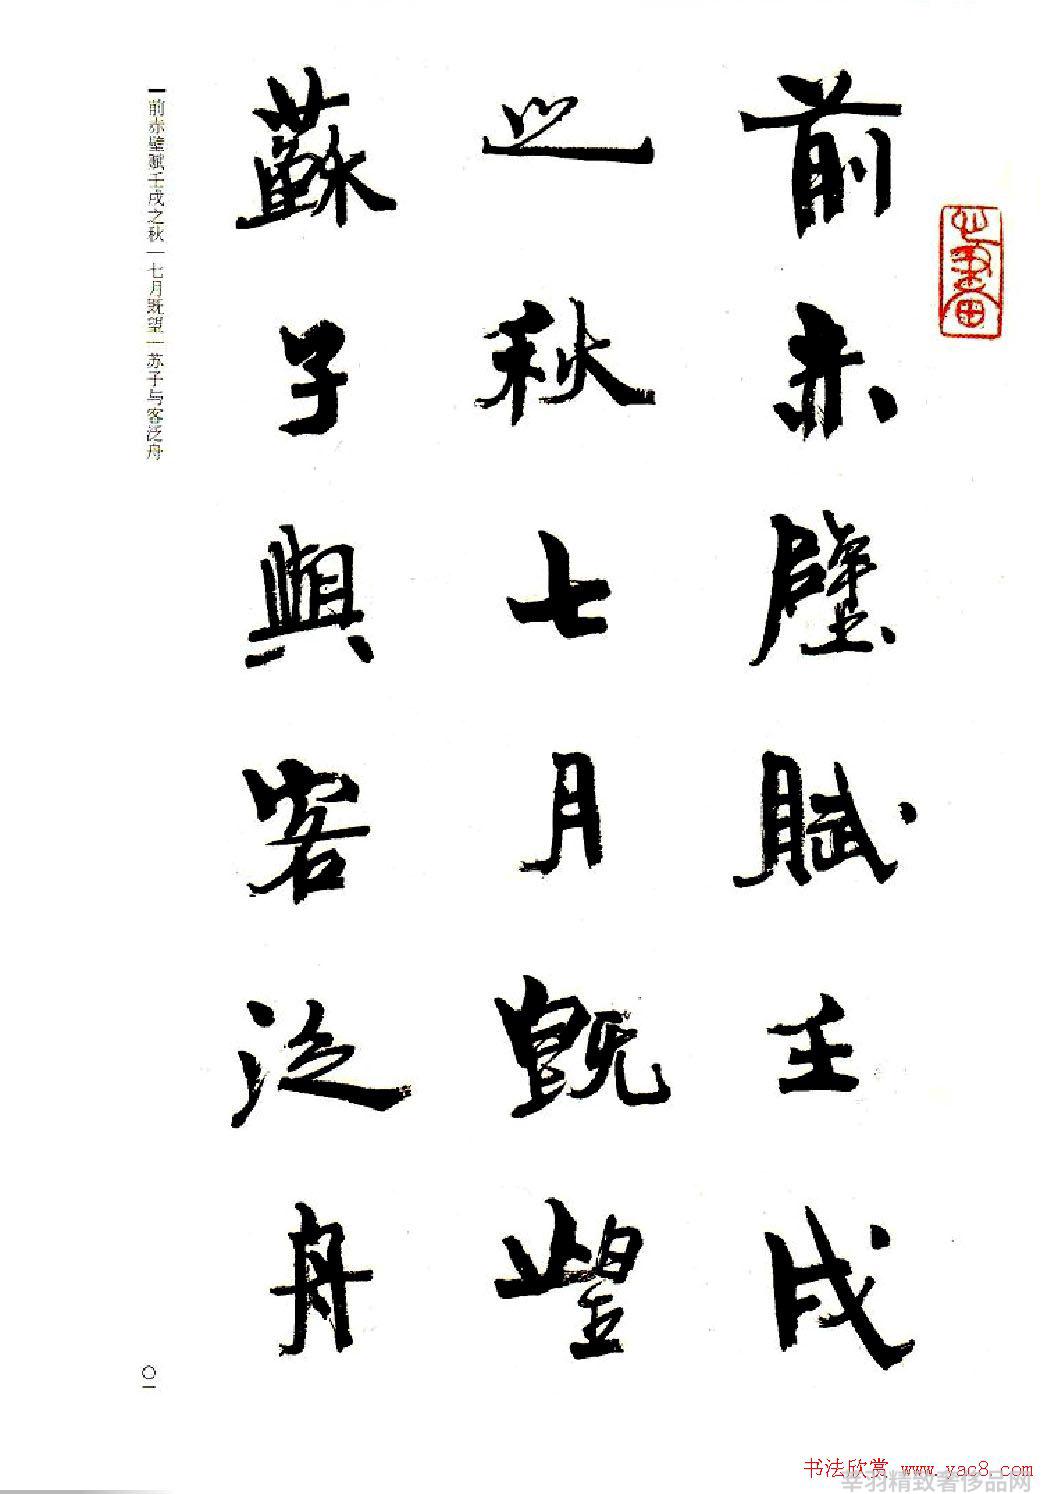 前赤壁賦壬戌
之秋七月既望
蘇子與客泛舟
前赤壁赋壬戌之秋｜七月既望｜苏子与客泛舟
〇一
书法欣赏 www.yac8.com
莘羽精致奢侈品网